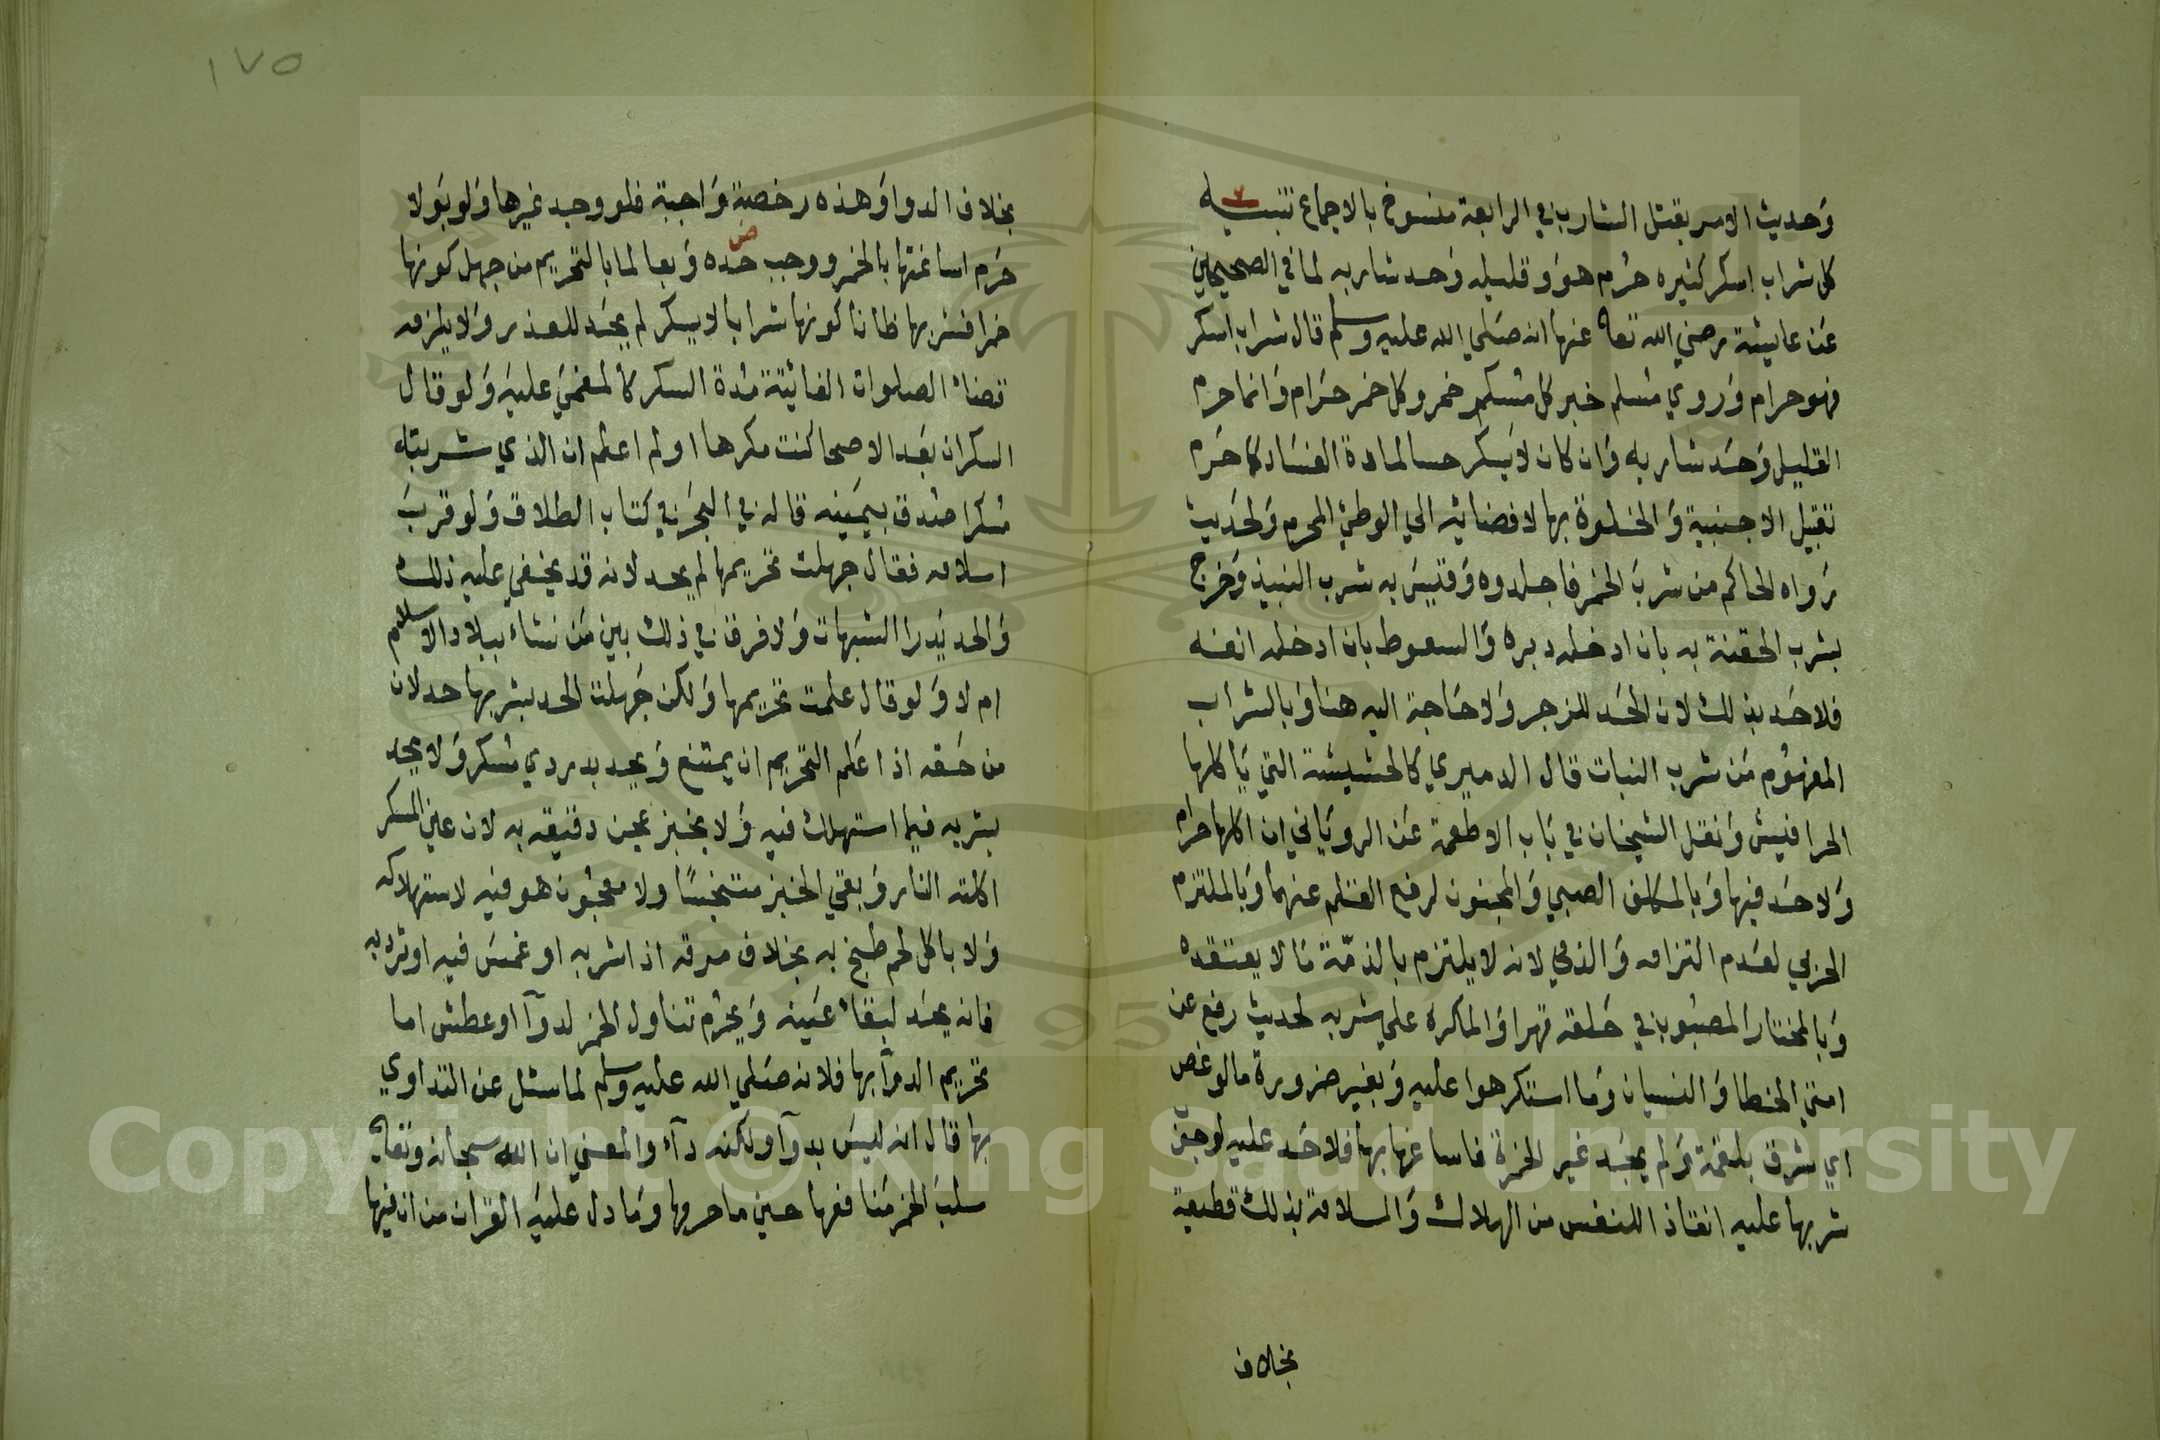 وحديث الامر بقتل الشارب في الرابعة منسوخ بالاجماع تنبيه
كل شراب اسكر كثيره حرم هو وقليله وحد شاربه لما في الصحيحين
عن عايشة رضي الله تعا عنها انه صلي الله عليه وسلم قال شراب اسكر
فهو حرام وروي مسلم خبر كل مسكر خمر وكل خمر حرام وانما حرم
القليل وحد شاربه وان كان لا يسكر حسما لمادة الفساد كما حرم
تقبيل الاجنبية والخلوة بها لافضائيه الي الوطئ المحرم ولحديث
رواه الحاكم من شرب الخمر فاجلدوه وقيس به شرب النبيذ وخرج
بشرب الحقنة به بان ادخله دبره والسعوط بان ادخله انفه
فلا حد بذلك لان الحد للزجر ولا حاجة اليه هنا وبالشراب
المفهوم من شرب النبات قال الدميري كالحشيشة التي ياكلها
الحرافيش ونقل الشيخان في باب الاطعمة عن الروياني ان اكلها حرام
ولا حد فيها وبالمكلف الصبي والمجنون لرفع القلم عنهما وبالملتزم
الحربي لعدم التزامه والذمي لانه لا يلتزم بالذمة مالا يعتقده
وبالمختار المصبوب في حلقه قهرا والمكره علي شربه لحديث رفع عن
امتي الخطا والنسيان وما استكرهوا عليه وبغير ضرورة مالو غص
اي شرق بلقمة ولم يجد غير الخمرة فاساغها بها فلا حد عليه لوجوب
شربها عليه انقاذ اللنفس من الهلاك والسلامة بذلك قطعية
بخلاف
١٧٥
بخلاف الدوا وهذه رخصة واجبة فلو وجد غيرها ولو بولا
حرم اساغتها بالخمر ووجب حده وبعالما بالتحريم من جهل كونها
خمرا فشربها ظانا كونها شرابا لا يسكر لم يحد للعذر ولا يلزمه
قضاء الصلوات الفائتة مدة السكر كالمغمي عليه ولو قال
السكران بعد الاصحا كنت مكرها او لم اعلم ان الذي شربته
مسكرا صدق بيمينه قاله في البحر في كتاب الطلاق ولو قرب
اسلامه فقال جهلت تحريمها لم يحد لانه قد يخفي عليه ذلك
والحد يدرا الشبهات ولا فرق في ذلك بين من نشاء ببلاد الاسلام
ام لا ولو قال علمت تحريمها ولكن جهلت الحد بشربها حد لان
من حقه اذ اعلم التحريم ان يمتنع ويحد بدردي مسكر ولا يحد
بشربه فيما استهلك فيه ولا بخبز عجن دقيقه به لان عين المسكر
اكلته النار وبقي الخبز متنجسا ولا معجون هو فيه لاستهلاكه
ولا باكل لحم طبخ به بخلاف مرقه اذ اشربه او غمس فيه او ثرد به
فانه يحد لبقاء عينه ويحرم تناول الخمر لدوآ او عطش اما
تحريم الدوآ بها فلانه صلي الله عليه وسلم لما سئل عن التداوي
بها قال انه ليس بدوآ ولكنه دآء والمعني ان الله سبحانه وتعا
سلب الخمر منافعها حين ما حرمها وما دل عليه القران من ان فيها
Copyright © King Saud University